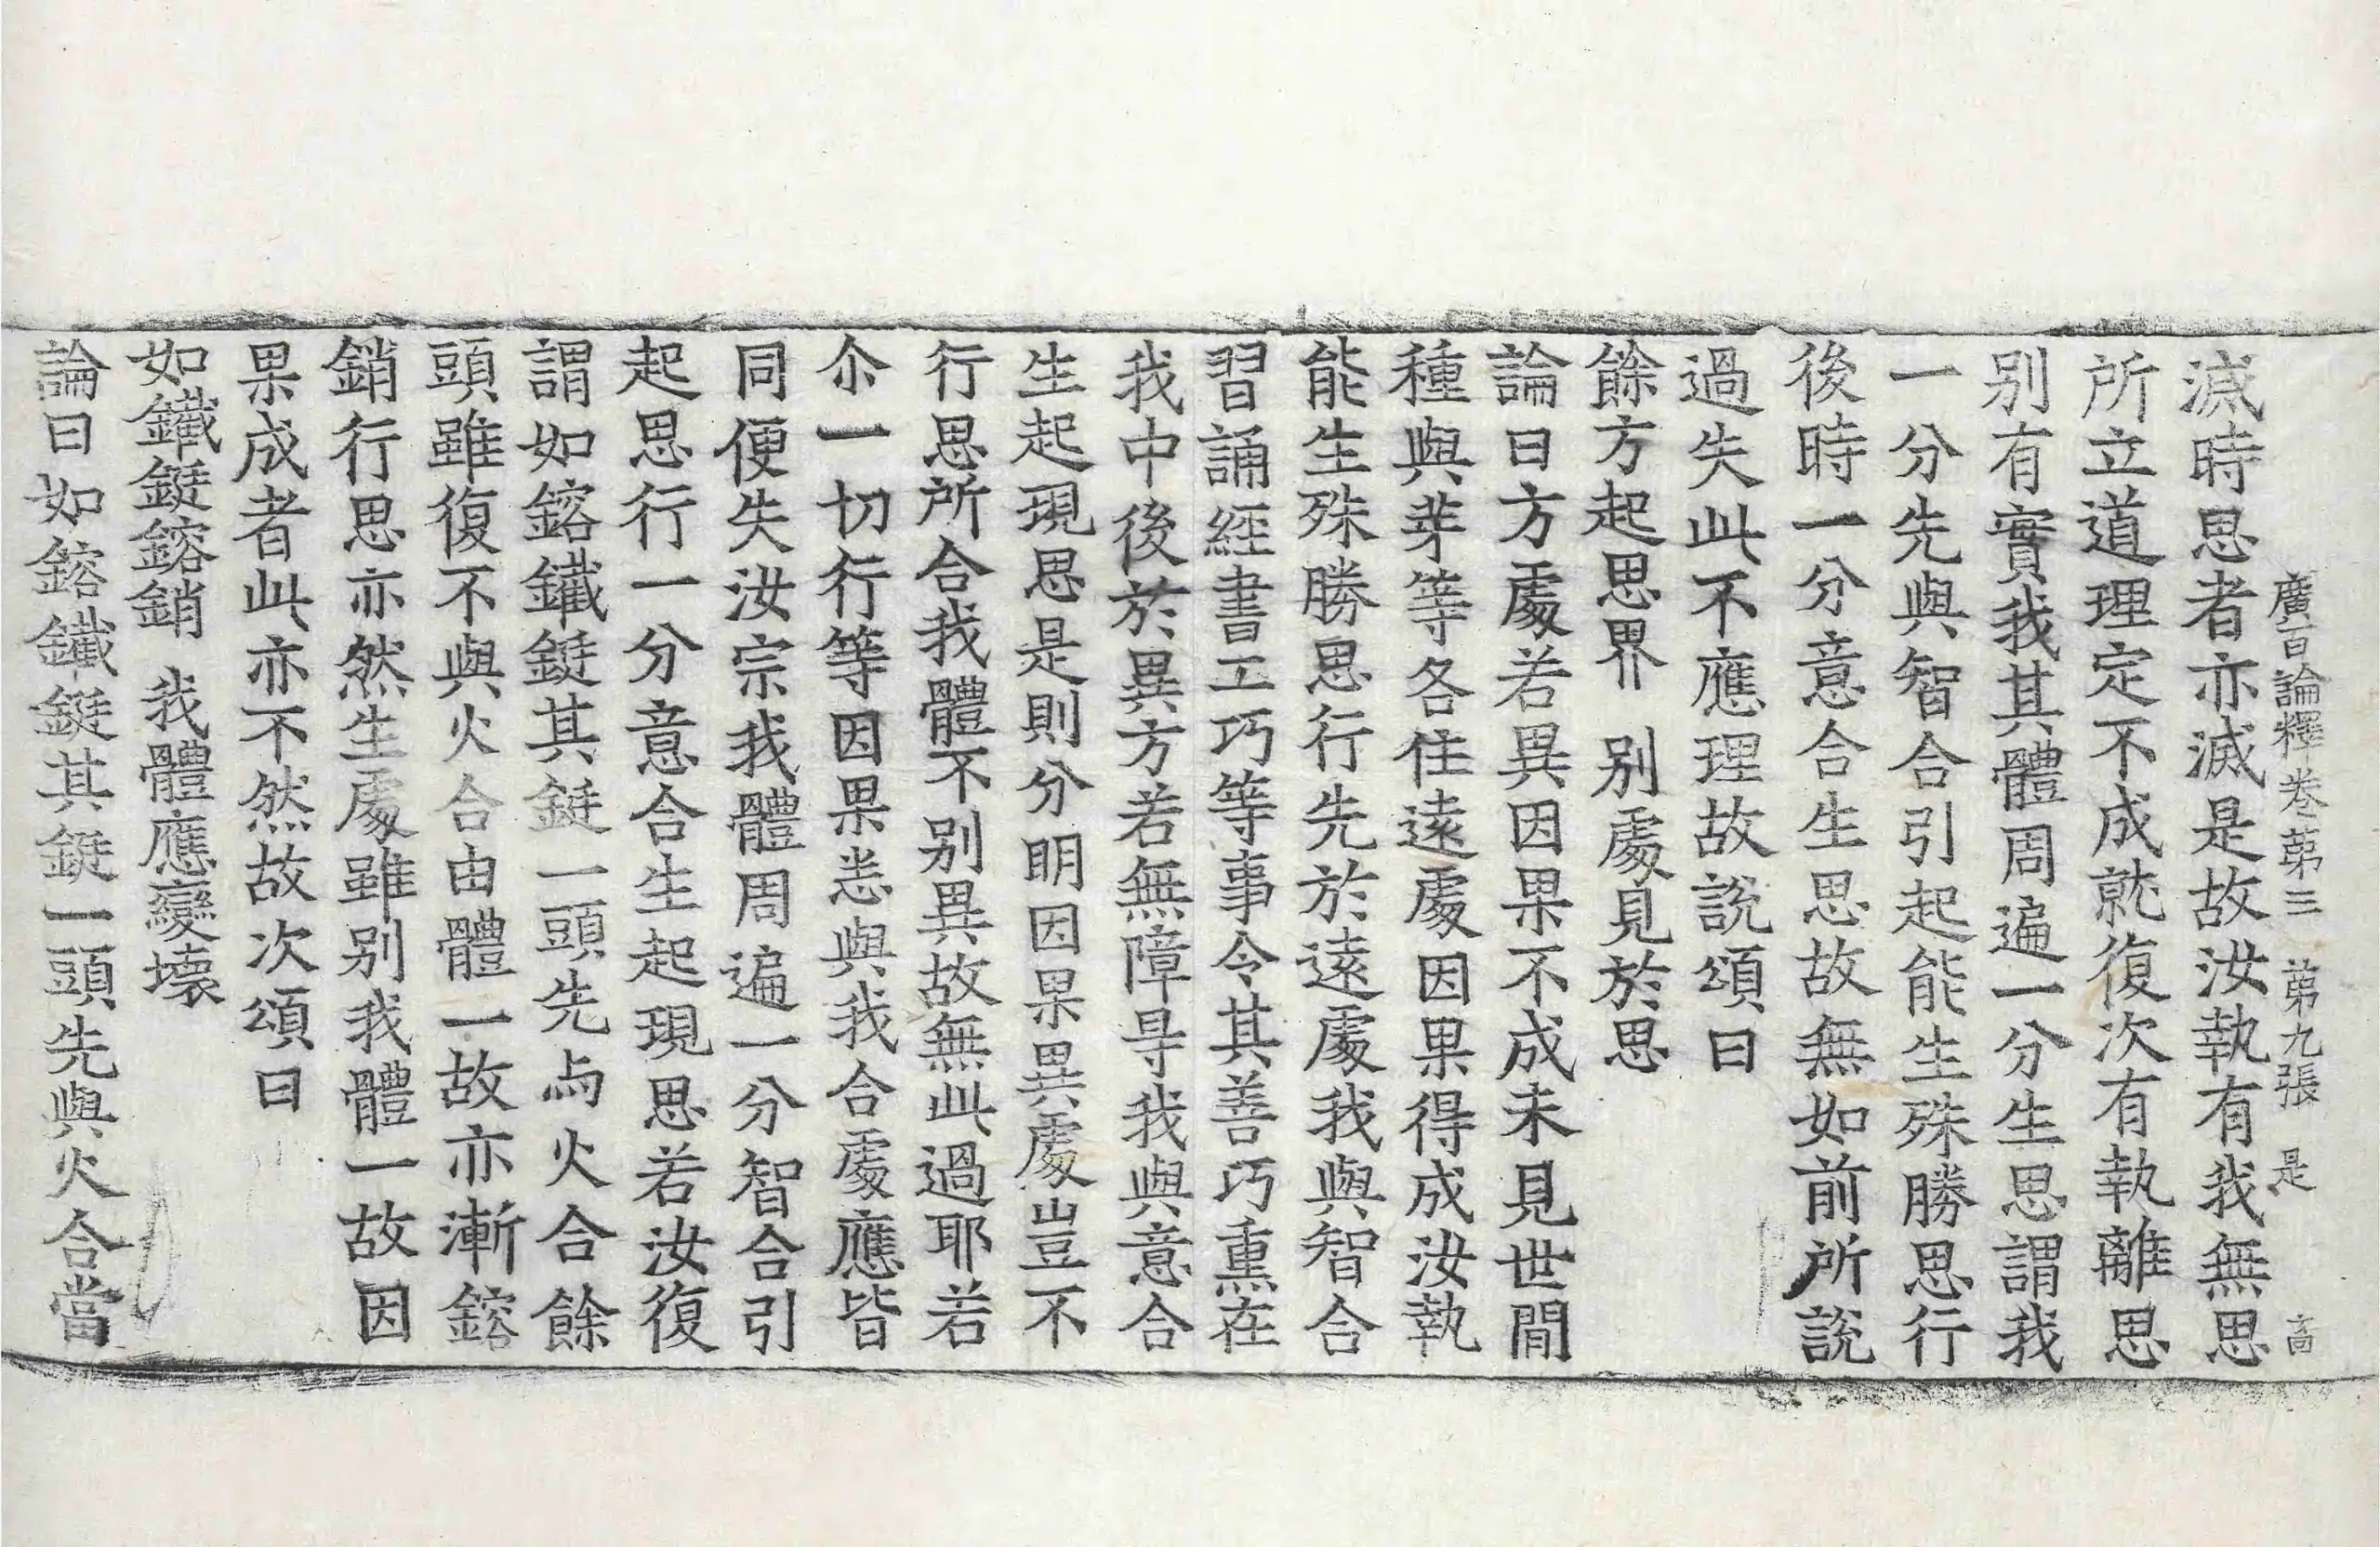 廣百論釋卷第三 第九張 是 高
滅時思者亦滅是故汝執有我無思
所立道理定不成就復次有執離思
別有實我其體周遍一分生思謂我
一分先與智合引起能生殊勝思行
後時一分意合生思故無如前所說
過失此不應理故說頌曰
餘方起思界 別處見於思
論曰方處若異因果不成未見世間
種與芽等各住遠處因果得成汝執
能生殊勝思行先於遠處我與智合
習誦經書工巧等事令其善巧熏在
我中後於異方若無障㝵我與意合
生起現思是則分明因果異處豈不
行思所合我體不別異故無此過耶若
尒一切行等因果恙與我合處應皆
同便失汝宗我體周遍一分智合引
起思行一分意合生起現思若汝復
謂如鎔鐵鋌其鋌一頭先与火合餘
頭雖復不與火合由體一故亦漸鎔
銷行思亦然生處雖別我體一故因
果成者此亦不然故次頌曰
如鐵鋌鎔銷 我體應變壞
論曰如鎔鐵鋌其鋌一頭先與火合當